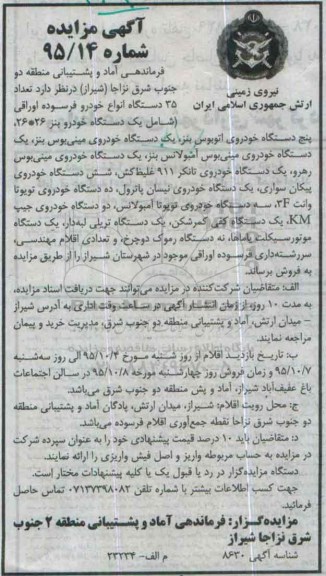 آگهی مزایده
شماره ۹۵/۱۴
نیروی زمینی
ارتش جمهوری اسلامی ایران
فرماندهی آماد و پشتیبانی منطقه دو
جنوب شرق نزاجا (شیراز) درنظر دارد تعداد
۳۵ دستگاه انواع خودرو فرسوده اوراقی
(شامل یک دستگاه خودرو بنز ۲۶*۲۶،
پنج دستگاه خودروی اتوبوس بنز، یک دستگاه خودروی مینی‌بوس بنز، یک
دستگاه خودروی مینی‌بوس آمبولانس بنز، یک دستگاه خودروی مینی‌بوس
رهرو، یک دستگاه خودروی تانکر ۹۱۱ غلیظ‌کش، شش دستگاه خودروی
پیکان سواری، یک دستگاه خودروی نیسان پاترول، ده دستگاه خودروی تویوتا
وانت ۳F، سه دستگاه خودروی تویوتا آمبولانس، دو دستگاه خودروی جیپ
KM، یک دستگاه کفی کمرشکن، یک دستگاه تریلی لبه‌دار، یک دستگاه
موتورسیکلت یاماها، نه دستگاه رموک دوچرخ، و تعدادی اقلام مهندسی،
سررشته‌داری فرسوده اوراقی موجود در شهرستان شیراز را از طریق مزایده
به فروش برساند.
الف: متقاضیان شرکت‌کننده در مزایده می‌توانند جهت دریافت اسناد مزایده،
به مدت ۱۰ روز، از زمان انتشار آگهی در ساعت وقت اداری به آدرس شیراز
– میدان ارتش، آماد و پشتیبانی منطقه دو جنوب شرق، مدیریت خرید و پیمان
مراجعه نمایند.
ب: تاریخ بازدید اقلام از روز شنبه مورخ ۹۵/۱۰/۴ الی روز سه‌شنبه
۹۵/۱۰/۷ و زمان فروش روز چهارشنبه مورخه ۹۵/۱۰/۸ در سالن اجتماعات
باغ عفیف‌آباد شیراز، آماد و پش منطقه دو جنوب شرق می‌باشد.
ج: محل رویت اقلام: شیراز، میدان ارتش، پادگان آماد و پشتیبانی منطقه
دو جنوب شرق نزاجا نقطه جمع‌آوری اقلام فرسوده می‌باشد.
د: متقاضیان باید ۱۰ درصد قیمت پیشنهادی خود را به عنوان سپرده شرکت
در مزایده به حساب مربوطه واریز و اصل فیش واریزی را ارائه نمایند.
دستگاه مزایده‌گزار در رد یا قبول یک یا کلیه پیشنهادات مختار است.
جهت کسب اطلاعات بیشتر با شماره تلفن ۰۷۱۳۷۳۹۸۰۸۲ تماس حاصل
فرمائید.
مزایده‌گزار: فرماندهی آماد و پشتیبانی منطقه ۲ جنوب
شرق نزاجا شیراز
شناسه آگهی ۸۶۳۰
م الف- ۲۳۲۳۴